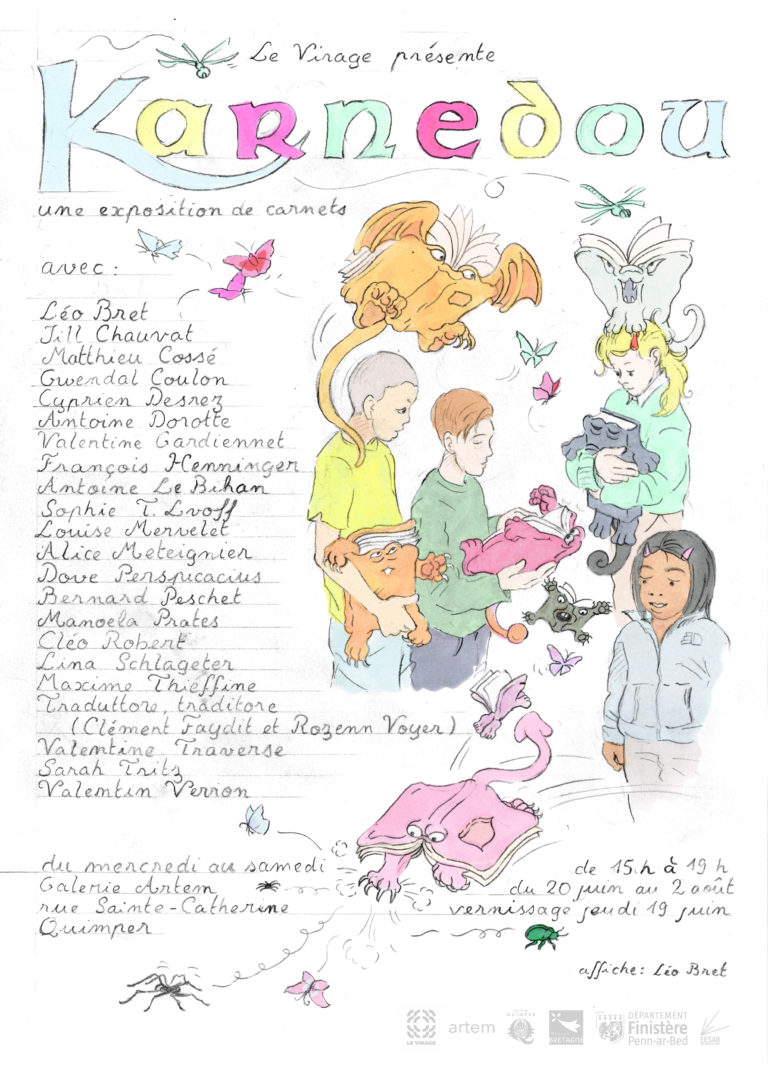 Le Virage présente
Karnedou
une exposition de carnets
avec :
Léo Bret
Jill Chauvat
Matthieu Cossé
Gwendal Coulon
Cyprien Desrez
Antoine Dorotte
Valentine Gardiennet
François Henninger
Antoine Le Bihan
Sophie T. Lvoff
Louise Mervelet
Alice Meteignier
Dove Perspicacius
Bernard Peschet
Manoela Prates
Cléo Robert
Lina Schlageter
Maxime Thieffine
Traduttore, traditore
(Clément Faydit et Rozenn Voyer)
Valentine Traverse
Sarah Tritz
Valentin Verron
du mercredi au samedi
Galerie Artem
rue Sainte-Catherine
Quimper
de 15 h à 19 h
du 20 juin au 2 août
vernissage jeudi 19 juin
affiche : Léo Bret
LE VIRAGE
artem
QUIMPER
BRETAGNE
DÉPARTEMENT
Finistère
Penn-ar-Bed
EESAB